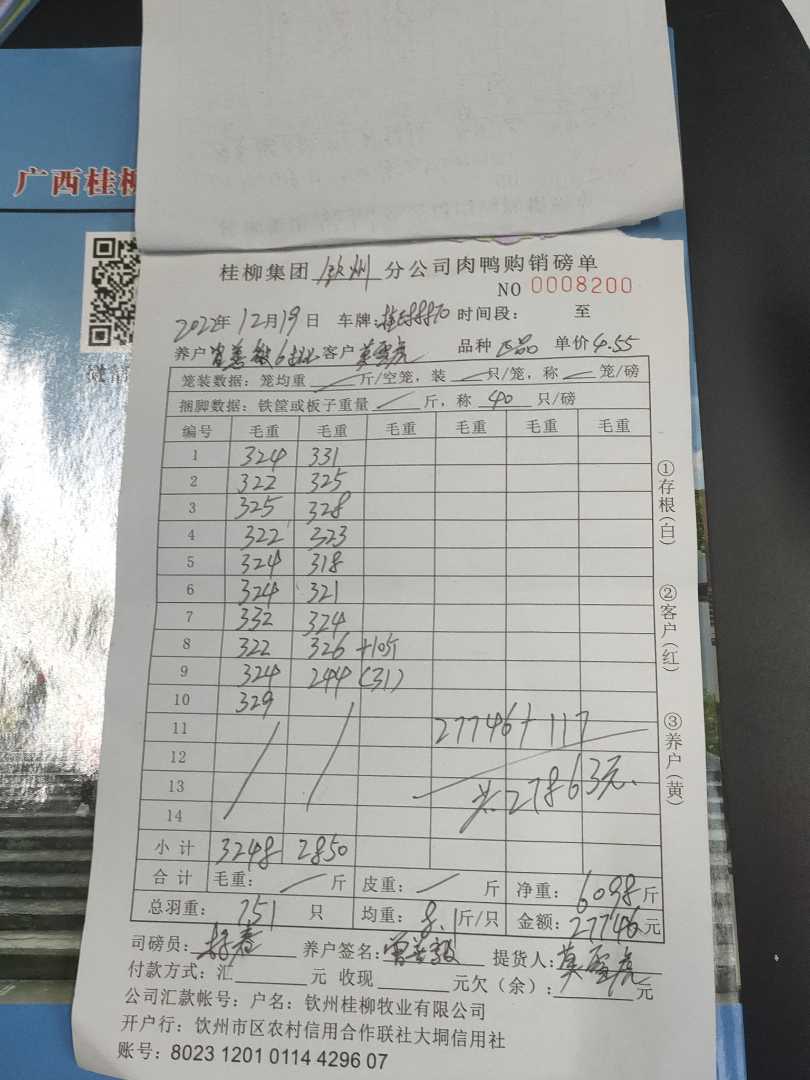 广西桂柳
桂柳集团 钦州 分公司肉鸭购销磅单
NO 0008200
2022年12月19日 车牌: 时间段: 至
养户 6批 客户 莫雪虎 品种 正品 单价 4.55
笼装数据: 笼均重 / 斤/空笼, 装 / 只/笼, 称 / 笼/磅
捆脚数据: 铁筐或板子重量 / 斤, 称 40 只/磅
编号 毛重 毛重 毛重 毛重 毛重 毛重
1 324 331
2 322 325
3 325 328
4 322 323
5 324 318
6 324 321
7 332 324
8 322 326 +10斤
9 324 244 (31)
10 329
11 27746+117
12
13 共:27863元.
14
小计 3248 2850
合计 毛重: / 斤 皮重: / 斤 净重: 6098 斤
总羽重: 751 只 均重: 8.1 斤/只 金额: 27746 元
司磅员: 养户签名: 提货人: 莫雪虎
付款方式: 汇 元 收现 元欠(余): 元
公司汇款帐号: 户名: 钦州桂柳牧业有限公司
开户行: 钦州市区农村信用合作联社大垌信用社
账号: 8023 1201 0114 4296 07
①存根(白)
②客户(红)
③养户(黄)